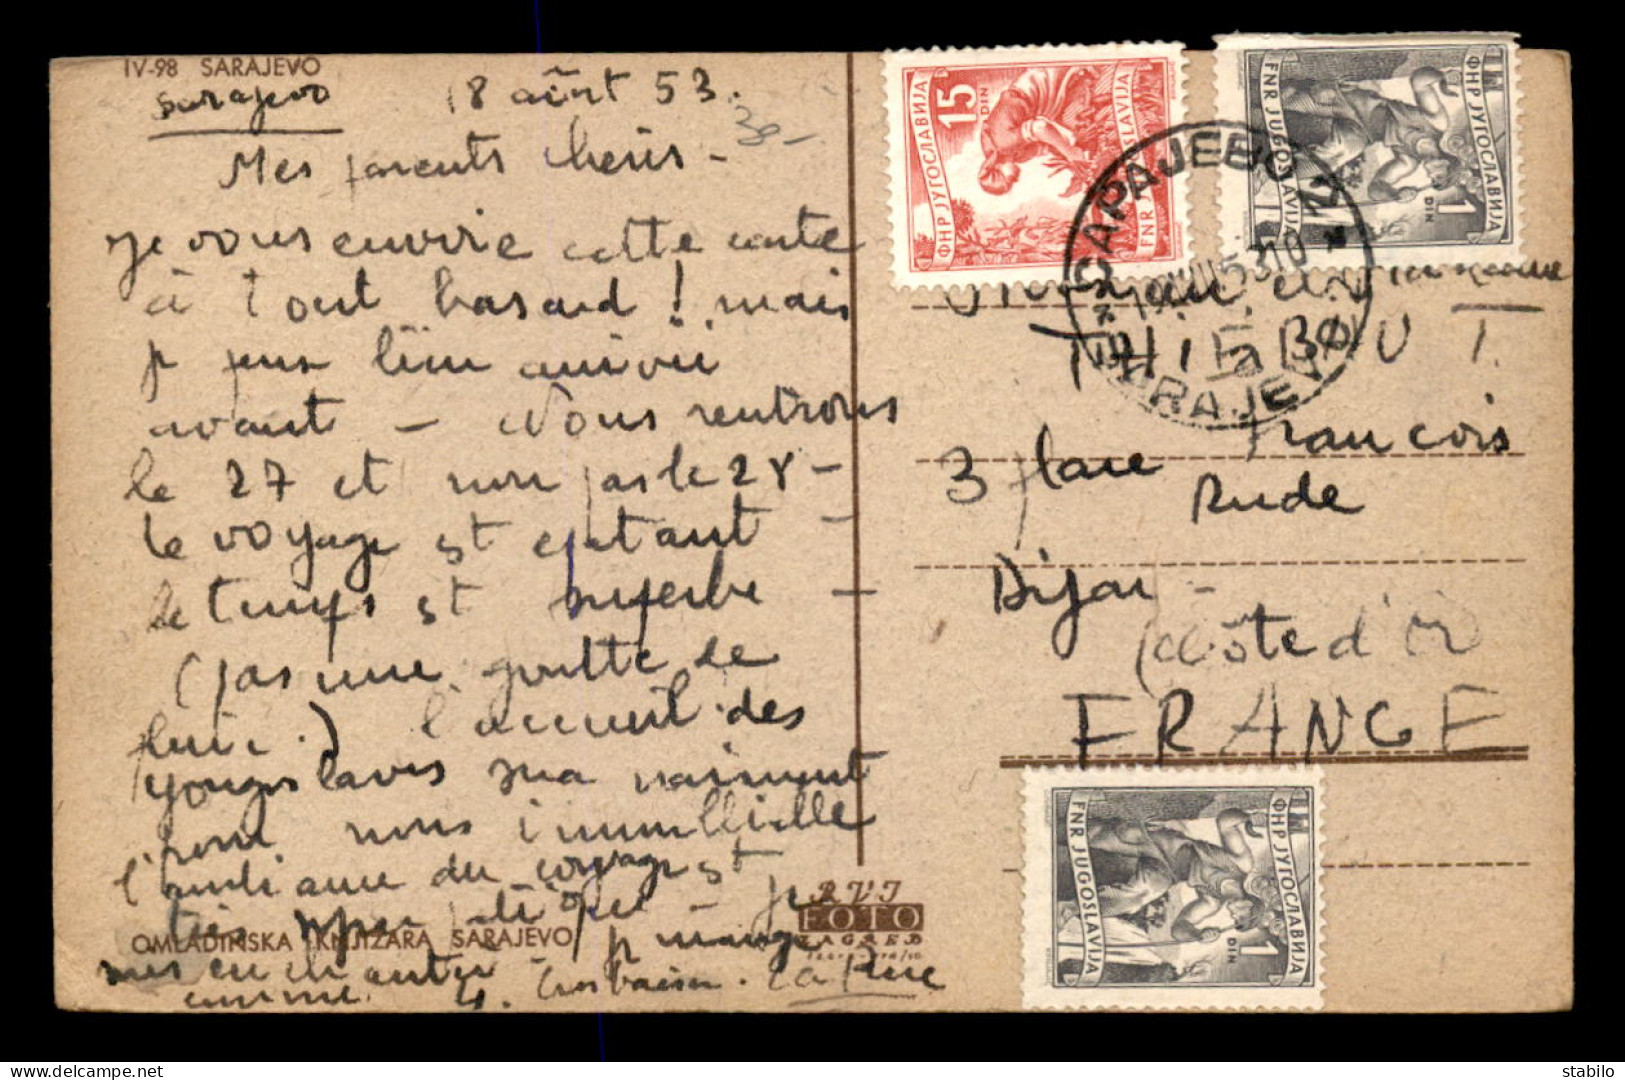 IV-98 SARAJEVO
Sarajevo
18 août 53.
30-
Mes parents chéris -
je vous envoie cette carte
à tout hasard ! mais
je peux bien arriver
avant - Nous rentrons
le 27 et non pas le 28 -
le voyage est épatant -
le temps est superbe -
(pas une goutte de
pluie.) l'accueil des
yougoslaves sera vraiment
pour nous inoubliable
l'ambiance du voyage est
très - je
suis enchantée - je mange
comme 4. Gros baisers.
OMLADINSKA KNJIŽARA SARAJEVO
RVI
FOTO
ZAGREB
15 DIN
ФНР ЈУГОСЛАВИЈА
FNR JUGOSLAVIJA
1 DIN
FNR JUGOSLAVIJA
ФНР ЈУГОСЛАВИЈА
САРАЈЕВО 2
SARAJEVO
Monsieur et Madame
THIEBAUT
3 place François
Rude
Dijon -
(Côte d'Or
FRANCE
1 DIN
FNR JUGOSLAVIJA
ФНР ЈУГОСЛАВИЈА
delcampe.net
stabilo